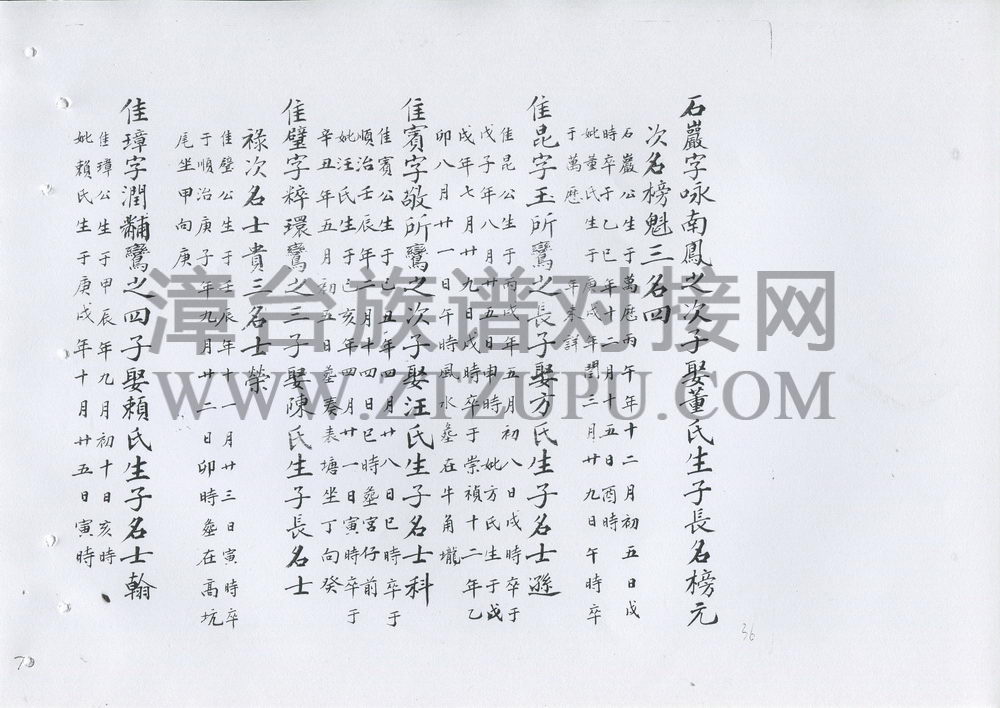 石巖字咏南鳳之次子娶董氏生子長名榜元
次名榜魁三名四
石巖公生于萬歷丙午年十二月初五日戌
時卒于乙巳年十二月十五日酉時
妣董氏生于庚戌年閏三月廿九日午時卒
于萬歷 年未詳
佳昆字玉所鸞之長子娶方氏生子名士遜
佳昆公生于丙戌年五月初八日戌時卒于
戊子年八月廿五日申時妣方氏生于戊
戌年七月廿九日戌時卒于崇禎十二年乙
卯八月廿一日午時風水塟在牛角壠
佳賓字敬所鸞之次子娶汪氏生子名士科
佳賓公生于己丑年四月廿八日巳時卒于
順治壬辰年二月十四日巳時塟宮仔前
妣汪氏生于己亥年四月廿一日寅時卒于
辛丑年五月初五日塟奏表塘坐丁向癸
佳璧字粹環鸞之三子娶陳氏生子長名士
祿次名士貴三名士榮
佳璧公生于壬辰年十一月廿三日寅時卒
于順治庚子年九月廿二日卯時塟在高坑
尾坐甲向庚
佳璋字潤黼鸞之四子娶賴氏生子名士翰
佳璋公生于甲辰年九月初十日亥時
妣賴氏生于庚戌年十月廿五日寅時
漳台族谱对接网
WWW.ZTZUPU.COM
36
70